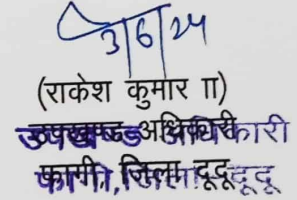 3/6/24
(राकेश कुमार II)
उपखण्ड अधिकारी
फागी, जिला दूदू